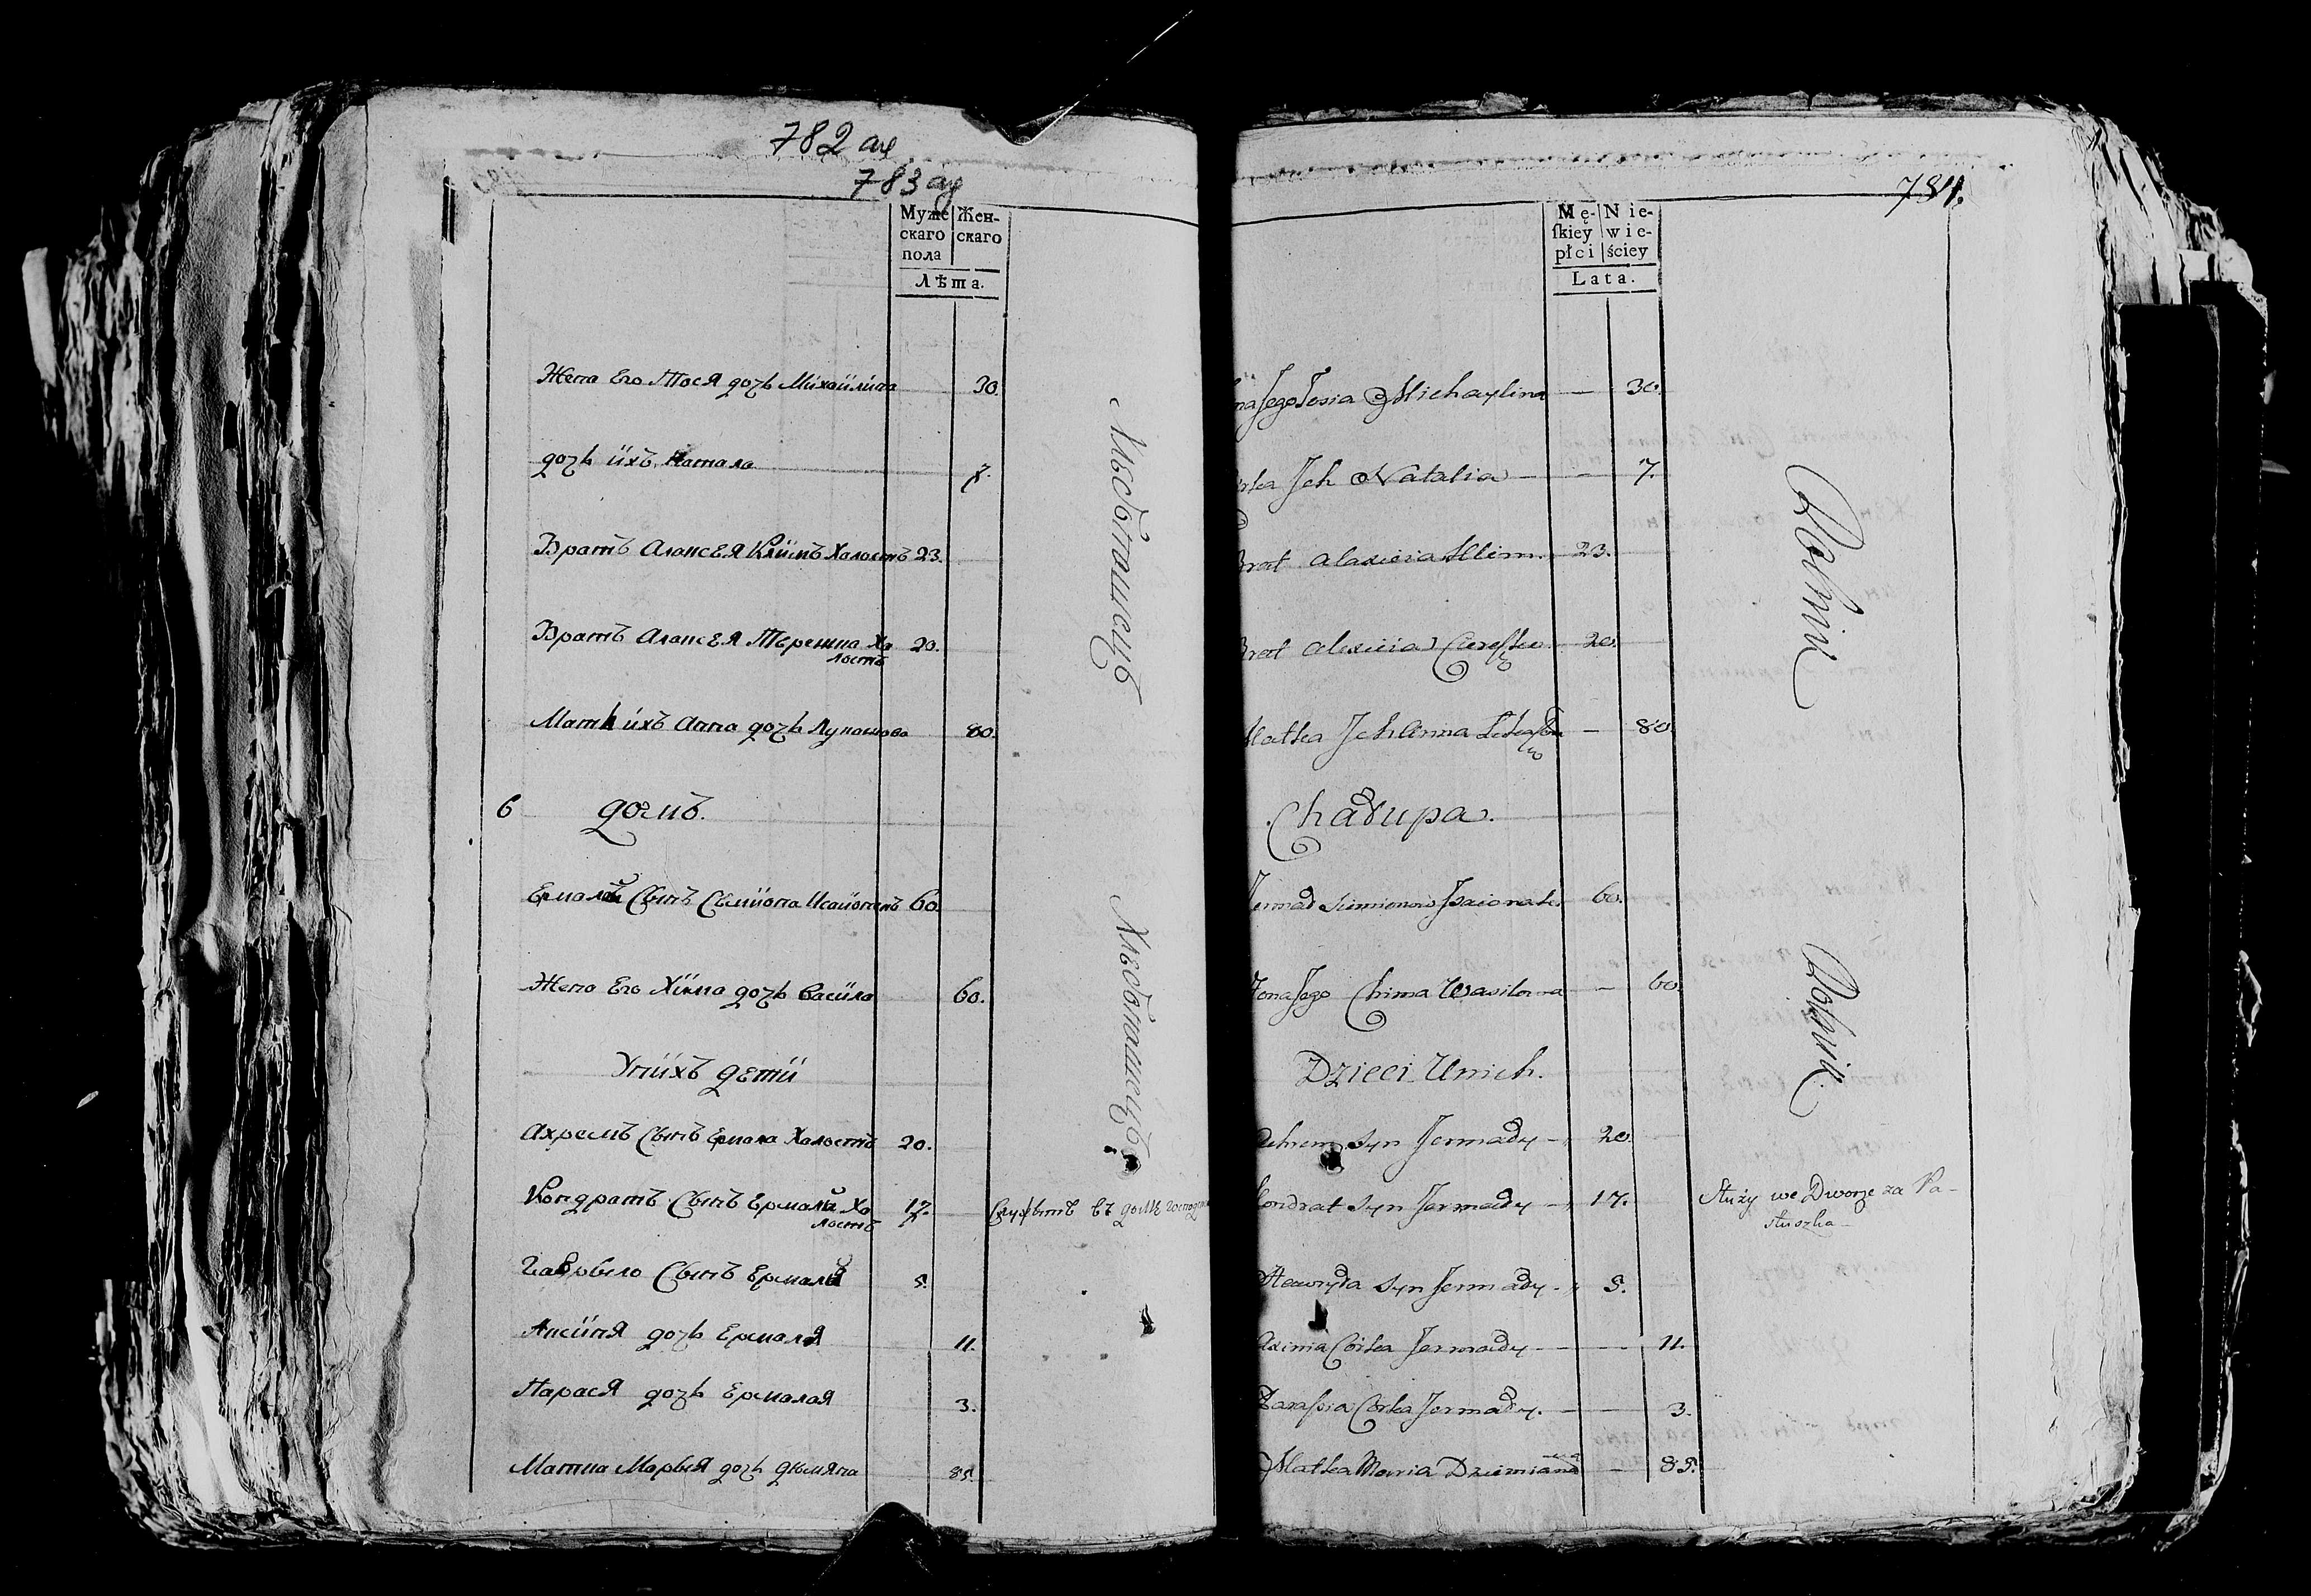 782 ад
783 ад
Муже
скаго
пола
Жен-
скаго
Лѣта.
Жена Его Тося дочь Михайлина 30.
дочь ихъ Натала 7.
Братъ Алаксея Климъ Халостъ 23.
Братъ Алаксея Терешка Ха 20.
лостъ
Мать ихъ Анна дочь Лукашова 80.
Хлебопашецъ
6 домъ.
Ермалай Сынъ Семиона Исаионакъ 60.
Жена Его Химка дочь Васила 60.
Унихъ дети
Ахремъ Сынъ Ермала Халостъ 20.
Кондратъ Сынъ Ермала Ха 17.
лостъ
Служытъ въ доме
Гаврыло Сынъ Ермала 5.
Аксиня дочь Ермалая 11.
Парася дочь Ермалая 3.
Матка Марыя дочь Дземяна 85.
Хлебопашецъ
784.
Mę-
ſkiey
płci
Nie-
wie-
ściey
Lata.
Jego Tosia Michaylina — 30.
Jch Natalia — — 7.
Brat Alaxieia Klim — 23.
Brat Alexieia Ciereſzko 20.
Matka Jch Anna — 80.
Rolnik
Chałupa.
Siemionow Jsaionak 60.
Żona Jego Chima Wasilowna — 60.
Dzieci Unich.
Achrem Syn Jermały — 20.
Kondrat Syn Jermały — 17.
Służy we Dworze za Pa-
stuszka —
Hawryła Syn Jermały — 5.
Axinia Córka Jermały — — 11.
Paraſsia Córka Jermały. — — 3.
Matka Maria Dziemiana — 85.
Rolnik